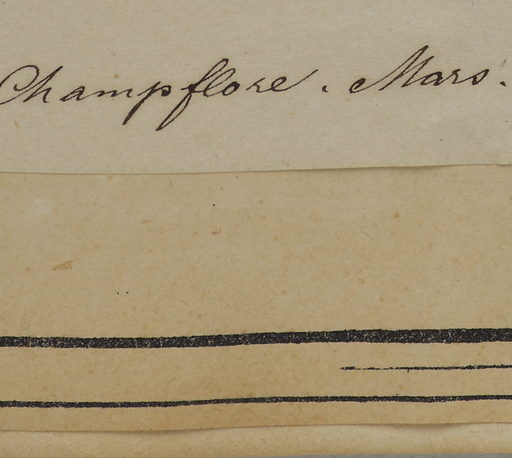 Champflore . Mars.